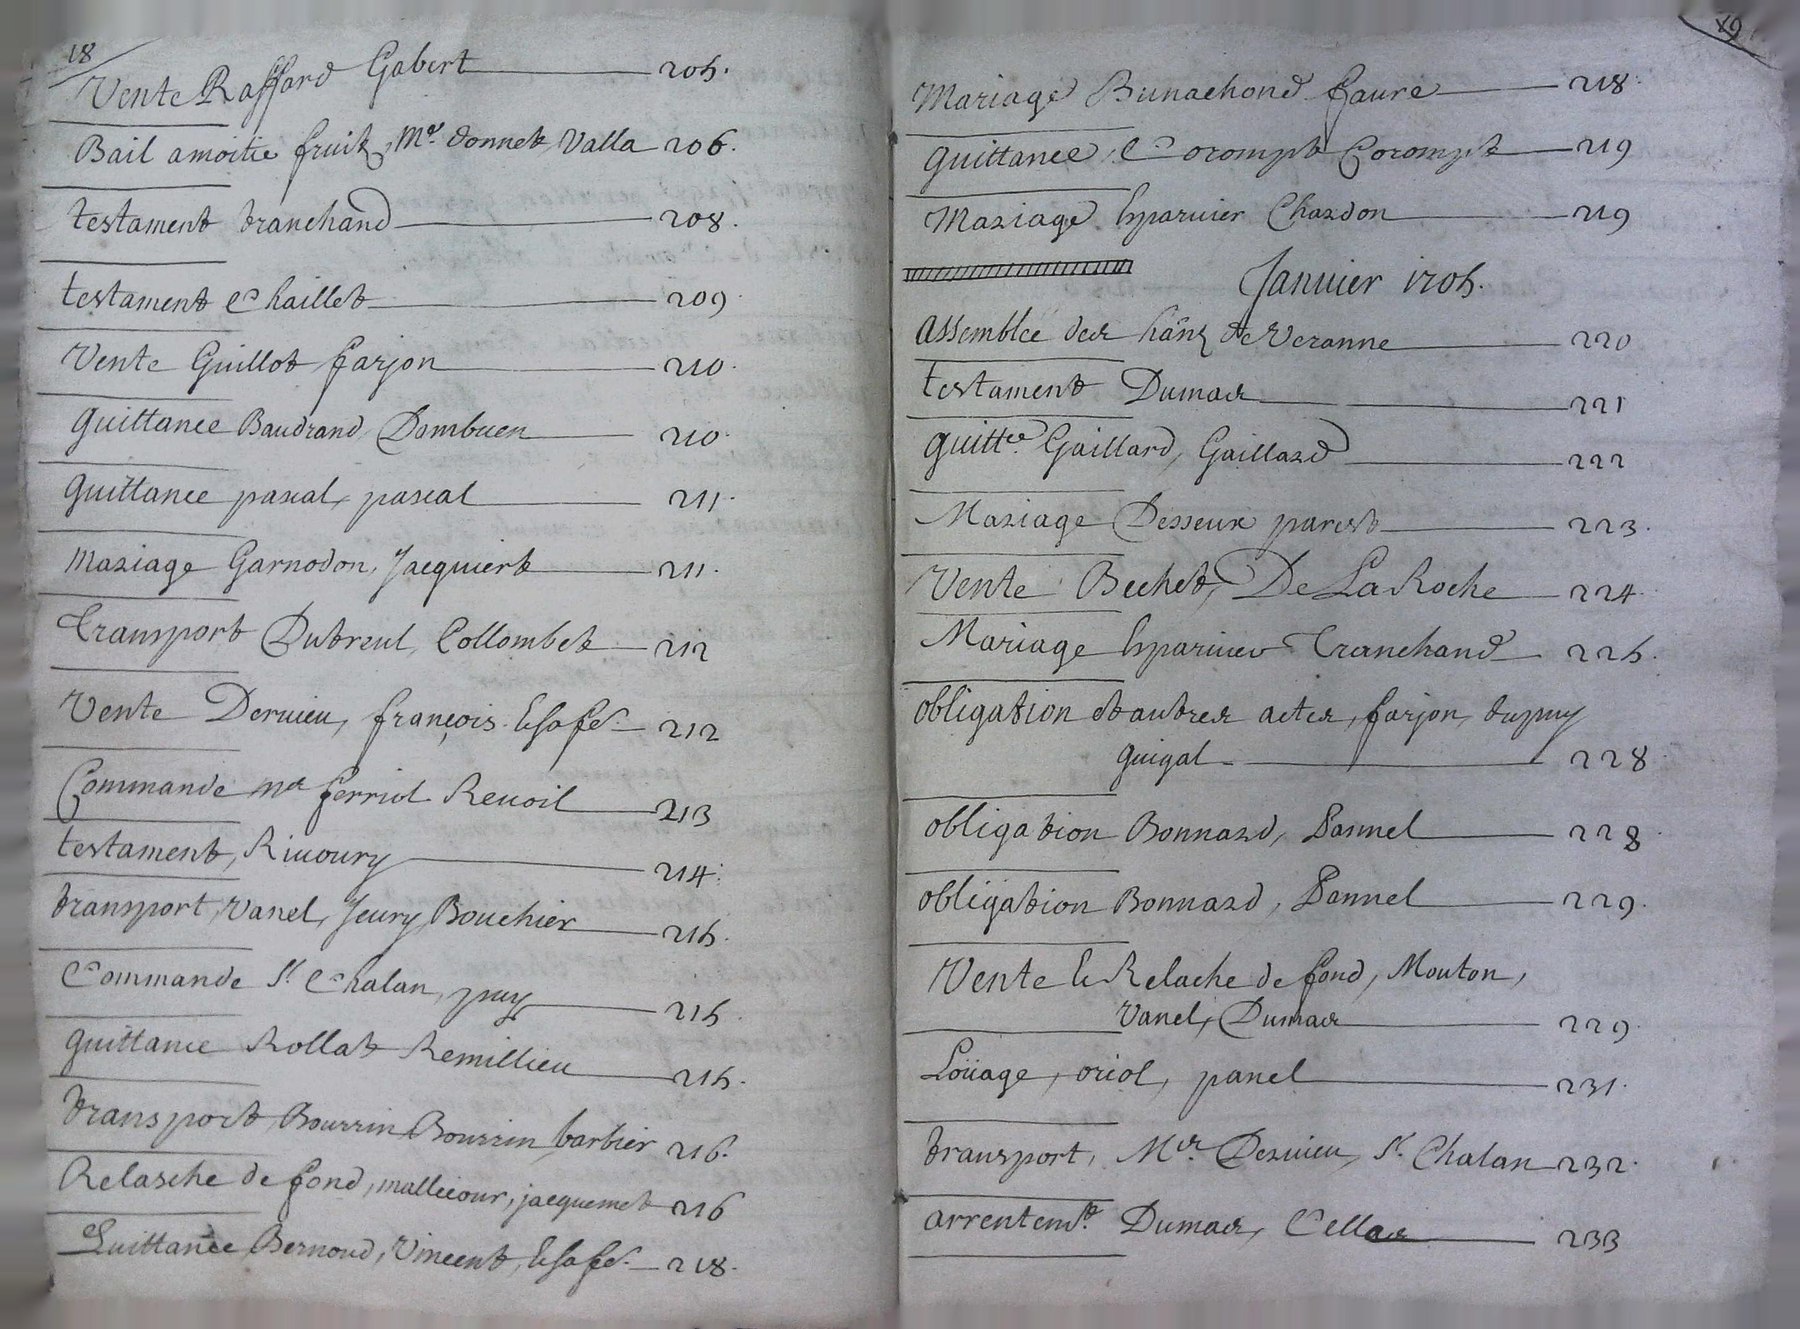 18
Vente Raffard Gabert 205.
Bail amoitie fruitz, Me. donnet, Valla 206.
testament tranchand 208.
testament Chaillet 209.
Vente Guillot farjon 210.
quittance Baudrand, Dambuen 210.
quittance pascal, pascal 211.
Mariage Garnodon, Jacquiert 211.
Transport Dutreul, Collombet 212
Vente Dervieu, françois 212
Commande Mr ferriol Revoil 213
testament, Rivoury 214.
transport, Vanel, Jeury, Bouchier 215.
Commande St. Chalan, puy 215.
quittance Rollat Remillieu 215.
transport, Bourrin Bourrin, barbier 216.
Relasche de fond, mallecour, jacquemet 216
Quittance Bernoud, Vincent, 218.
19
Mariage Bunachond faure 218.
quittance, Corompt Corompt 219
Mariage Esparvier Chardon 219
Janvier 1705.
assemblée des hânz de Veranne 220
testament Dumas 221
quittce. Gaillard, Gaillard 222
Mariage Desseux paret 223.
Vente Bechet, De La Roche 224.
Mariage Esparvier Tranchand 225.
obligation et autres actes, farjon, dupuy
guigal 228.
obligation Bonnard, Pannel 228.
obligation Bonnard, Pannel 229.
Vente & Relache de fond, Mouton,
Vanel, Dumas 229.
Loüage, oriol, panel 231.
transport, Mrs. Dervieu, St. Chalan 232.
arrentemt. Dumas, Cellas 233